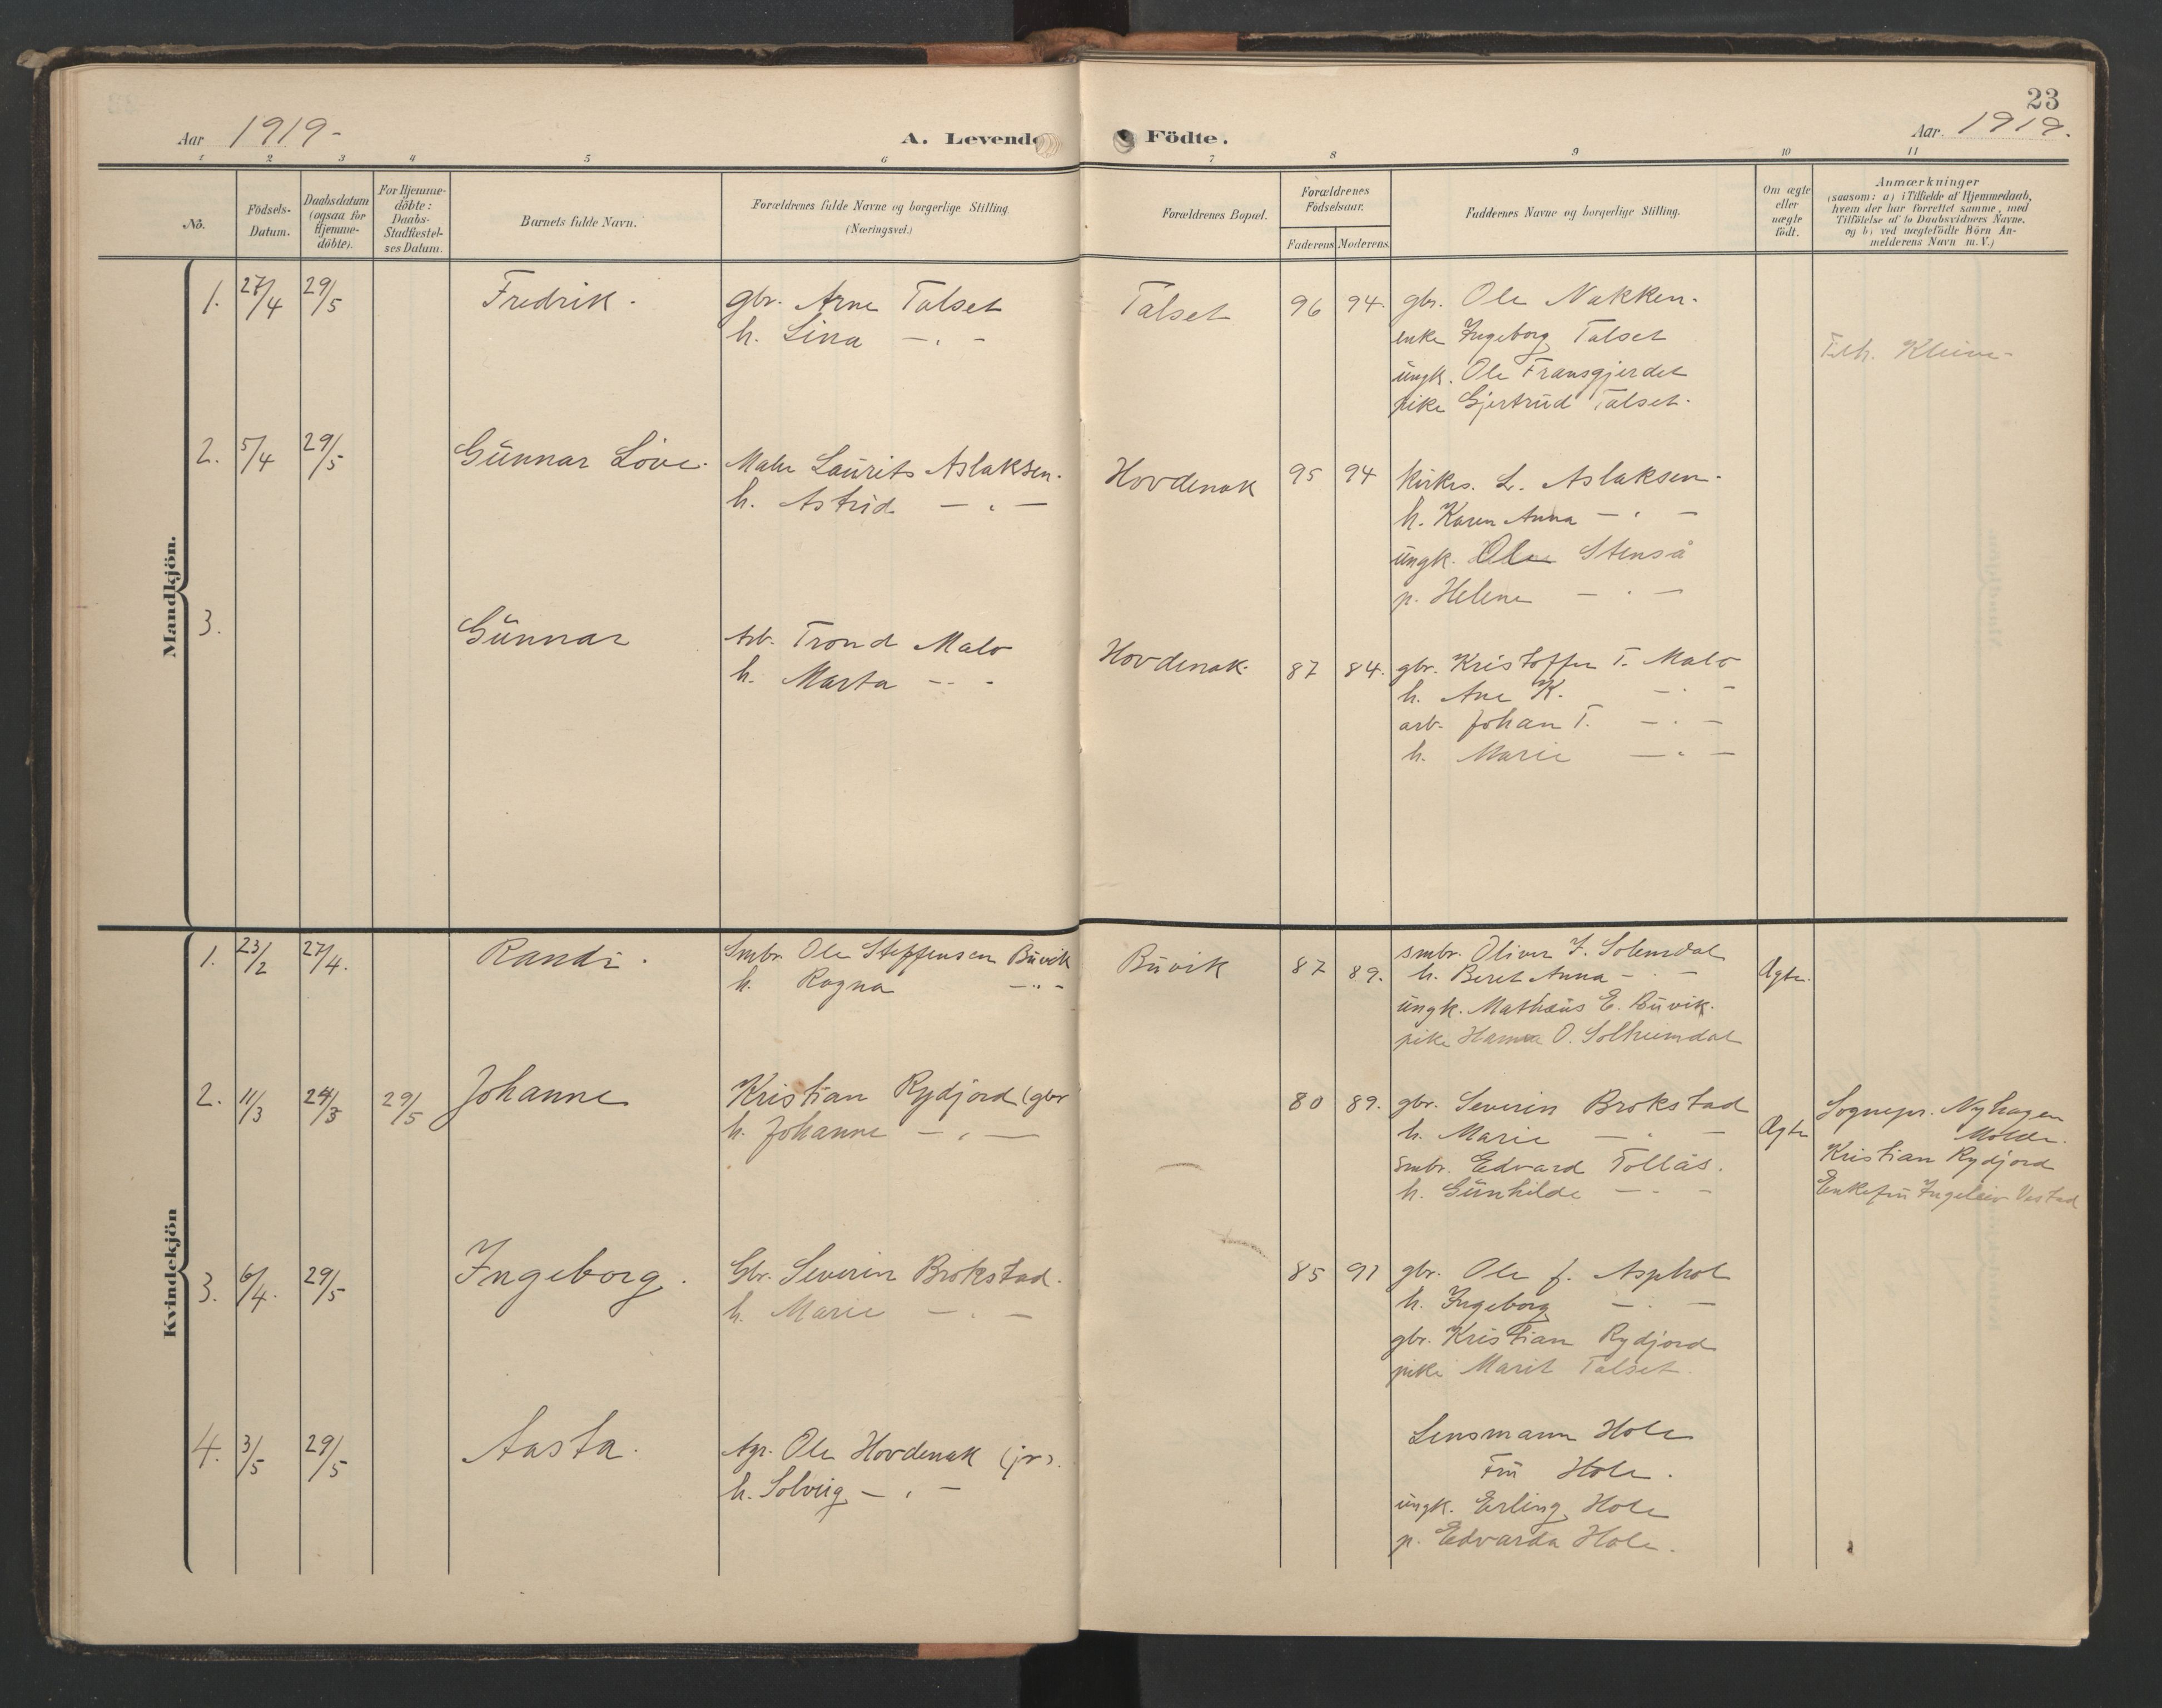 23
Aar 1919-
A. Levende Födte.
Aar. 1919.
1 2 3 4 5 6 7 8 9 10 11
No.
Födsels-
Datum.
Daabsdatum
(ogsaa for
Hjemme-
döbte).
For Hjemme-
döbte:
Daabs-
Stadfæstel-
ses Datum.
Barnets fulde Navn.
Forældrenes fulde Navne og borgerlige Stilling
(Næringsvei.)
Forældrenes Bopæl.
Forældrenes
Födselsaar.
Faderens Moderens
Faddernes Navne og borgerlige Stilling.
Om ægte
eller
uægte
født.
Anmærkninger
(saasom: a) i Tilfælde af Hjemmedaab,
hvem der har forrettet samme, med
Tilföielse af to Daabsvidners Navne.
og b) ved uægtefödte Börn An-
melderens Navn m. V.)
Mandkjön.
1. 27/4 29/5 Fredrik. gbr. Arne Talset Talset 96 94. gbr. Ole Nakken.
h. Lina -.- enke Ingeborg Talset
Tilh. Kleive-
ungk. Ole Fransgjerdet
pike Gjertrud Talset.
2. 5/4 29/5 Gunnar Love. Maler Laurits Aslaksen. Hovdenak 95 94 Kirkes. L. Aslaksen.
h. Astrid -.- h. Karen Anna -.-
ungk. Ole Stenså
p. Helene -.-
3. Gunnar Arb. Trond Malo Hovdenak 87 84. gbr. Kristoffer T. Malo
h. Marta -.- h. Ane K. -.-
arb. Johan T. -.-
h. Marie -.-
Kvindekjön
1. 23/2 27/4. Randi. Smbr. Ole Steffensen Buvik Buvik 87 89. smbr. Oliver J. Solemdal Ægte.
h. Ragna -.- h. Beret Anna -.-
ungk. Mathæus E. Buvik.
pike Hanna O. Solheimdal
2. 11/3 24/3 29/5 Johanne Kristian Rydjord (gbr 80 89. gbr. Severin Brokstad Ægte Sognepr. Nyhagen
h. Johanne -.- h. Marie -.- Molde.
smbr. Edvard Tollås. Kristian Rydjord
h. Gunhilde -.- Enkefru Ingeleiv Vestad
3. 6/4. 29/5 Ingeborg. Gbr. Severin Brokstad. 85 91 gbr. Ole J. Asphol
h. Marie -.- h. Ingeborg -.-
gbr. Kristian Rydjord
pike Marit Talset.
4. 3/5 29/5 Aasta. Agr. Ole Hovdenak (jr). Lensmann Hole
h. Solveig -.- Fru Hole.
ungk. Erling Hole
p. Edvarda Hole.